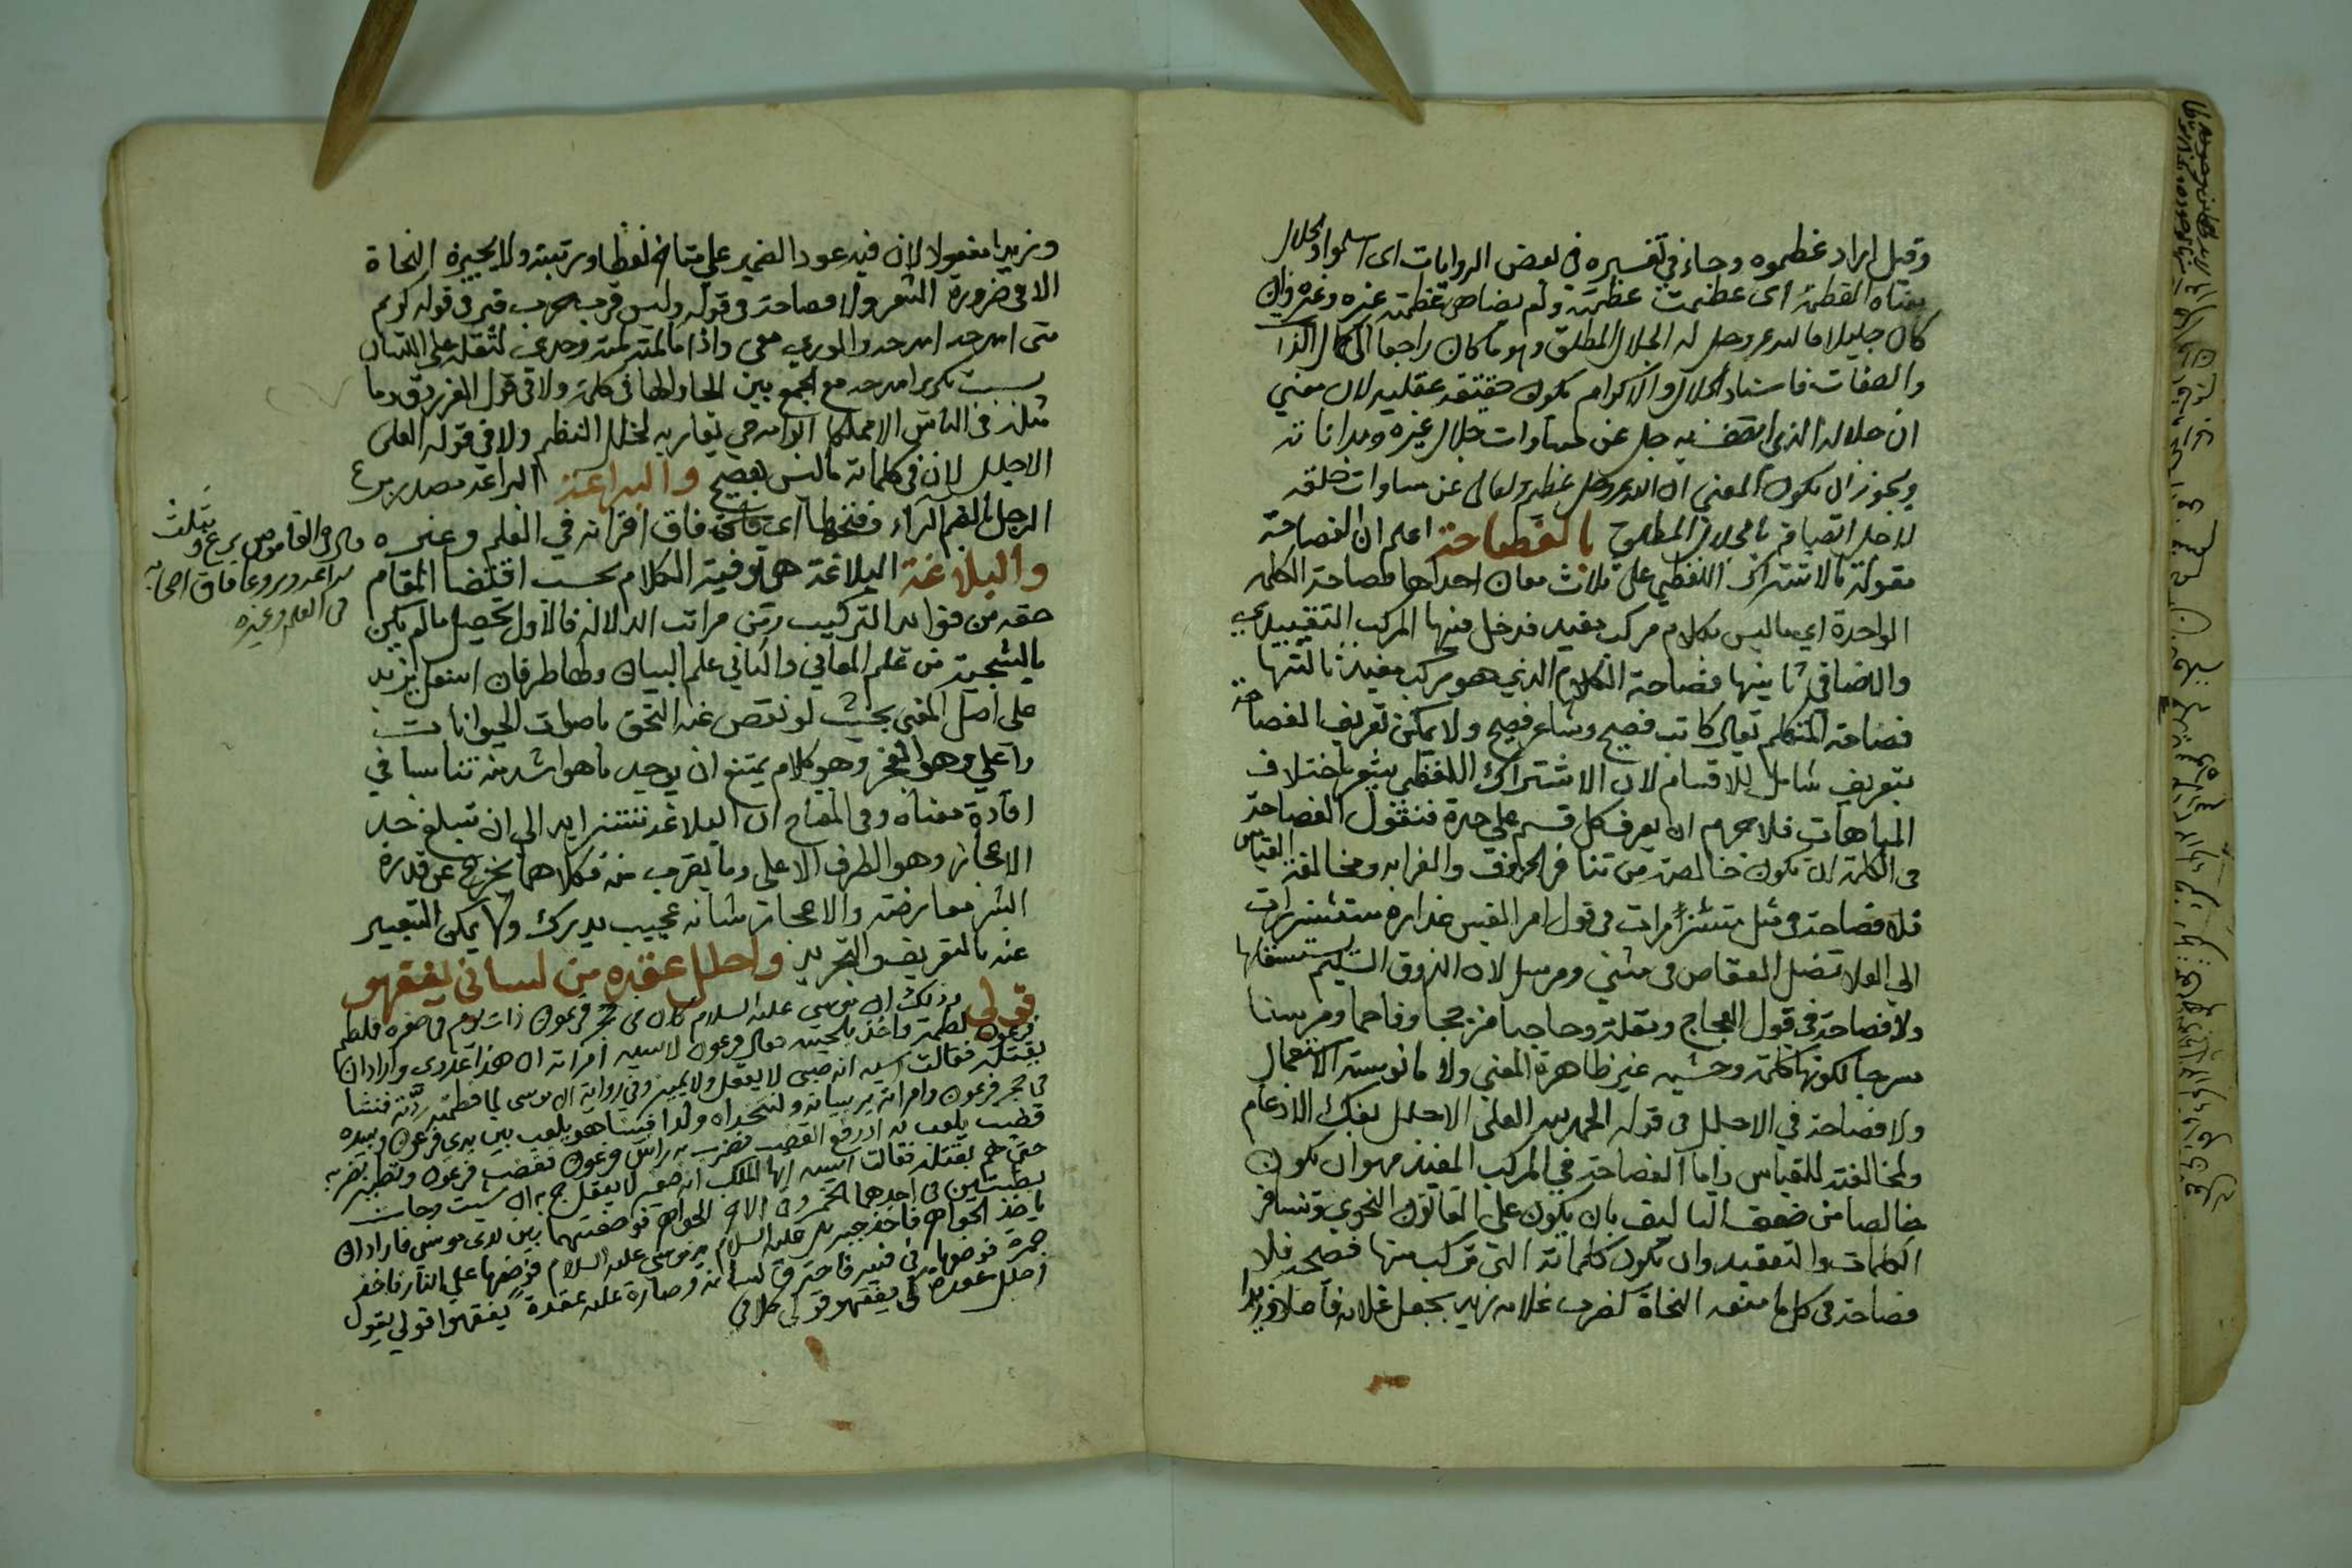 وقيل اراد عظموه وجاء في تفسيره في بعض الروايات اى اسلموا والجلال
معناه العظمة اى عظمت عظمته ولم يضاهى عظمته غيره وغيره وان
كان جليلا فالله عز وجل له الجلال المطلق وهو ما كان راجعا الى كمال الذات
والصفات فاسناد الجلال والاكرام يكون حقيقه عقليه لان معني
ان جلاله الذي اتصف به جل عن مساوات جلال غيره ومداناته
ويجوز ان يكون المعني ان الله عز وجل عظم وتعالى عن مساوات خلقه
لاجل اتصافه بالجلال المطلق بالفصاحة اعلم ان الفصاحة
مقولة بالاشتراك اللفظي على ثلاث معان احداها فصاحة الكلمه
الواحدة اي ماليس بكلام مركب مفيد فدخل فيها المركب التقييدي
والاضافي ثانيها فصاحة الكلام الذي هو مركب مفيد ثالثها
فصاحة المتكلم يقال كاتب فصيح وشاعر فصيح ولا يمكن تعريف الفصاحة
بتعريف شامل للاقسام لان الاشتراك اللفظي يشعر باختلاف
الماهات فلا جرم ان يعرف كل قسم على حدة فنقول الفصاحة
في الكلمة ان تكون خالصة من تنافر الحروف والغرابه ومخالفة القياس
فلا فصاحة في مثل مستشزرات في قول امر القيس غدايره مستشزرات
الى العلا تضل العقاص في مثني ومرسل لان الذوق السليم يستثقلها
ولا فصاحة في قول العجاج ومقلة وحاجبا مزججا وفاحما ومرسنا
مسرجا لكونها كلمة وحشيه غير ظاهرة المعني ولا مانوسة الاستعمال
ولا فصاحة في الاجلل في قوله الحمد لله العلى الاجلل بفك الادغام
ولمخالفته للقياس واما الفصاحة في المركب المفيد فهو ان يكون
خالصا من ضعف التاليف بان يكون على القانون النحوي وتنافر
الكلمات والتعقيد وان تكون كلماته التي تركب منها فصيحه فلا
فصاحة في كل ما منعه النحاة كضرب غلامه زيد بجعل غلامه فاعلا وزيدا
وزيدا مفعولا لان فيه عود الضمير على متاخر لفظا ورتبة ولا يجيزه النحاة
الا في ضرورة الشعر ولا فصاحة في قوله وليس قرب حرب قبر في قوله كريم
متى امدحه امدحه والورى معي واذا مالمته لمته وحدي لثقله على اللسان
بسبب تكرير امدحه مع الجمع بين الحا والها في كلمة ولا في قول الفرزدق وما
مثله في الناس الا مملكا ابو امه حي يقاربه لخلل النظم ولا في قوله العلى
الاجلل لان في كلماته ماليس بفصيح والبراعة البراعة مصدر برع
الرجل بالضم الراء وفتحها اي فاق اقرانه في العلم وغيره
والبلاغة البلاغة هي توفية الكلام بحسب اقتضا المقام
حقه من فوايد التركيب ومن مراتب الدلالة فالاول يحصل مالم يكن
بالسجية من علم المعاني والثاني علم البيان ولها طرفان اسفل يزيد
على اصل المعنى بحيث لو نقص عنه التحق باصوات الحيوانات
واعلى وهو المعجز وهو كلام يمتنع ان يوجد ما هو اشد منه تناسبا في
افادة معناه وفي المفتاح ان البلاغة تتزايد الى ان تبلغ حد
الاعجاز وهو الطرف الاعلى وما يقرب منه فكلاهما يخرج عن قدرة
البشر معارضته والاعجاز شانه عجيب يدرك ولا يمكن التعبير
عنه بالتعريف والتحرير واحلل عقده من لساني يفقهو
قولى وذلك ان موسى عليه السلام كان في حجر فرعون ذات يوم في صغره فلطم
فرعون لطمة واخذ بلحيته فقال فرعون لاسيه امراته ان هذا عدوي واراد ان
يقتله فقالت اسيه انه صبي لا يعقل ولا يميز وفي رواية ان موسى لما فطمته ردته فنشا
في حجر فرعون وامراته يربيانه واتخذاه ولدا فبينا هو يلعب بين يدي فرعون وبيده
قضيب يلعب به اذ رفع القضيب فضرب به راس فرعون فغضب فرعون وتطير بضربه
حتى هم بقتله فقالت اسيه ايها الملك انه صغير لا يعقل جربه ان شيت وجات
بطشتين في احدهما الجمر وفي الاخر الجواهر فوضعتهما بين يدى موسى فاراد ان
ياخذ الجواهر فاخذ جبريل عليه السلام يد موسى عليه السلام فوضعها على النار فاخذ
جمرة فوضعها في فيه فاحترق لسانه وصارة عليه عقدة يفقهوا قولي يقول
احلل عقدة كى يفقهو قولى كلامى
قال في القاموس برع ويثلث
براعة وبروعا فاق اصحابه
في العلم وغيره